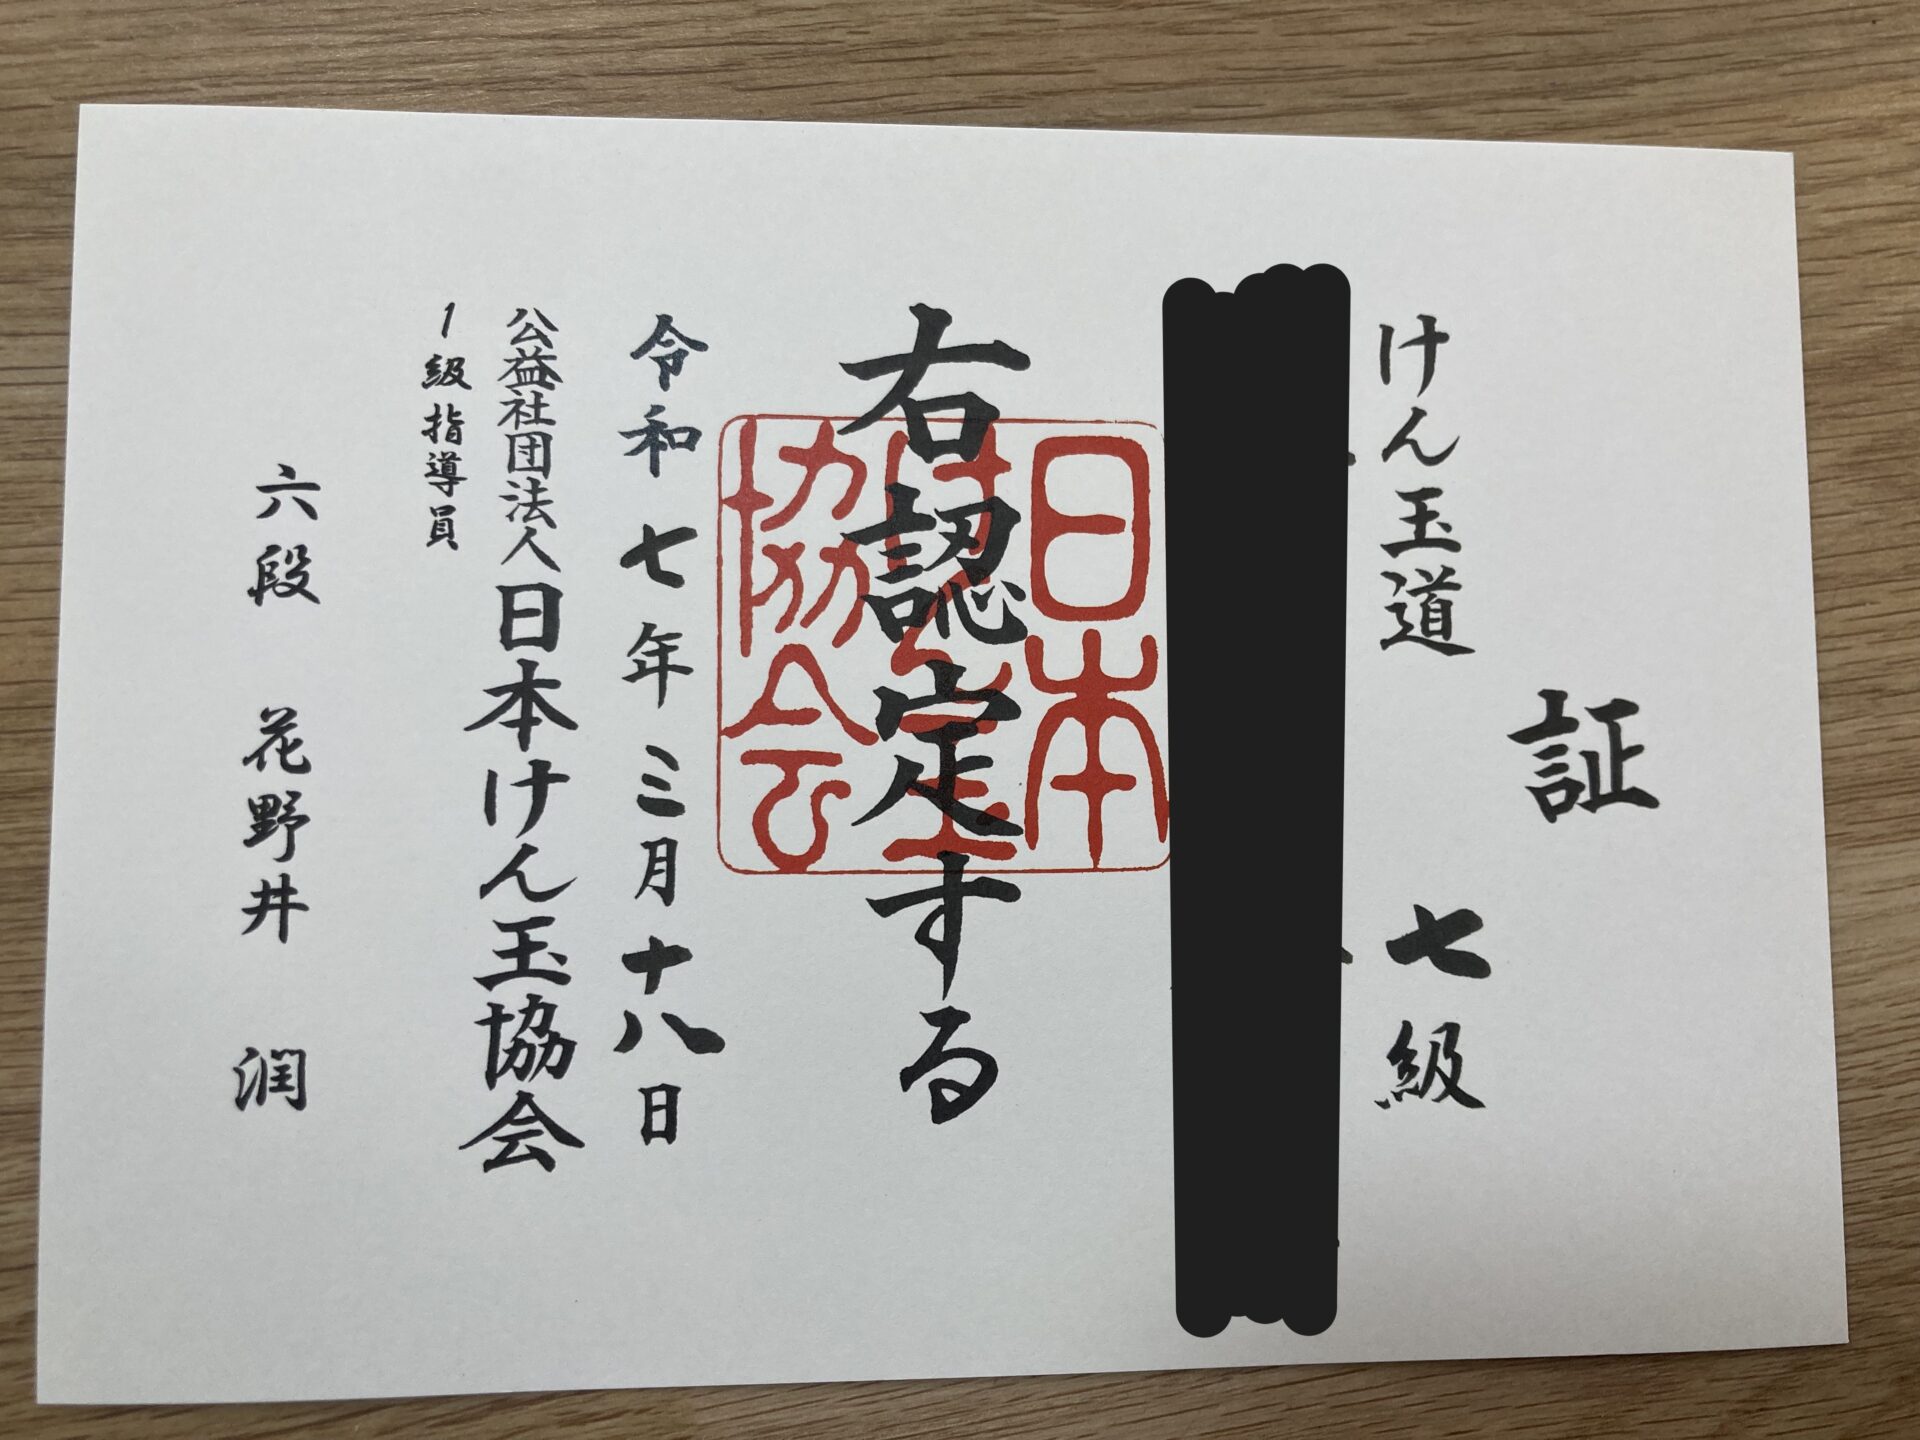 証
けん玉道 七級
右認定する
日本けん玉協会
令和七年三月十八日
公益社団法人日本けん玉協会
1級指導員
六段 花野井 潤